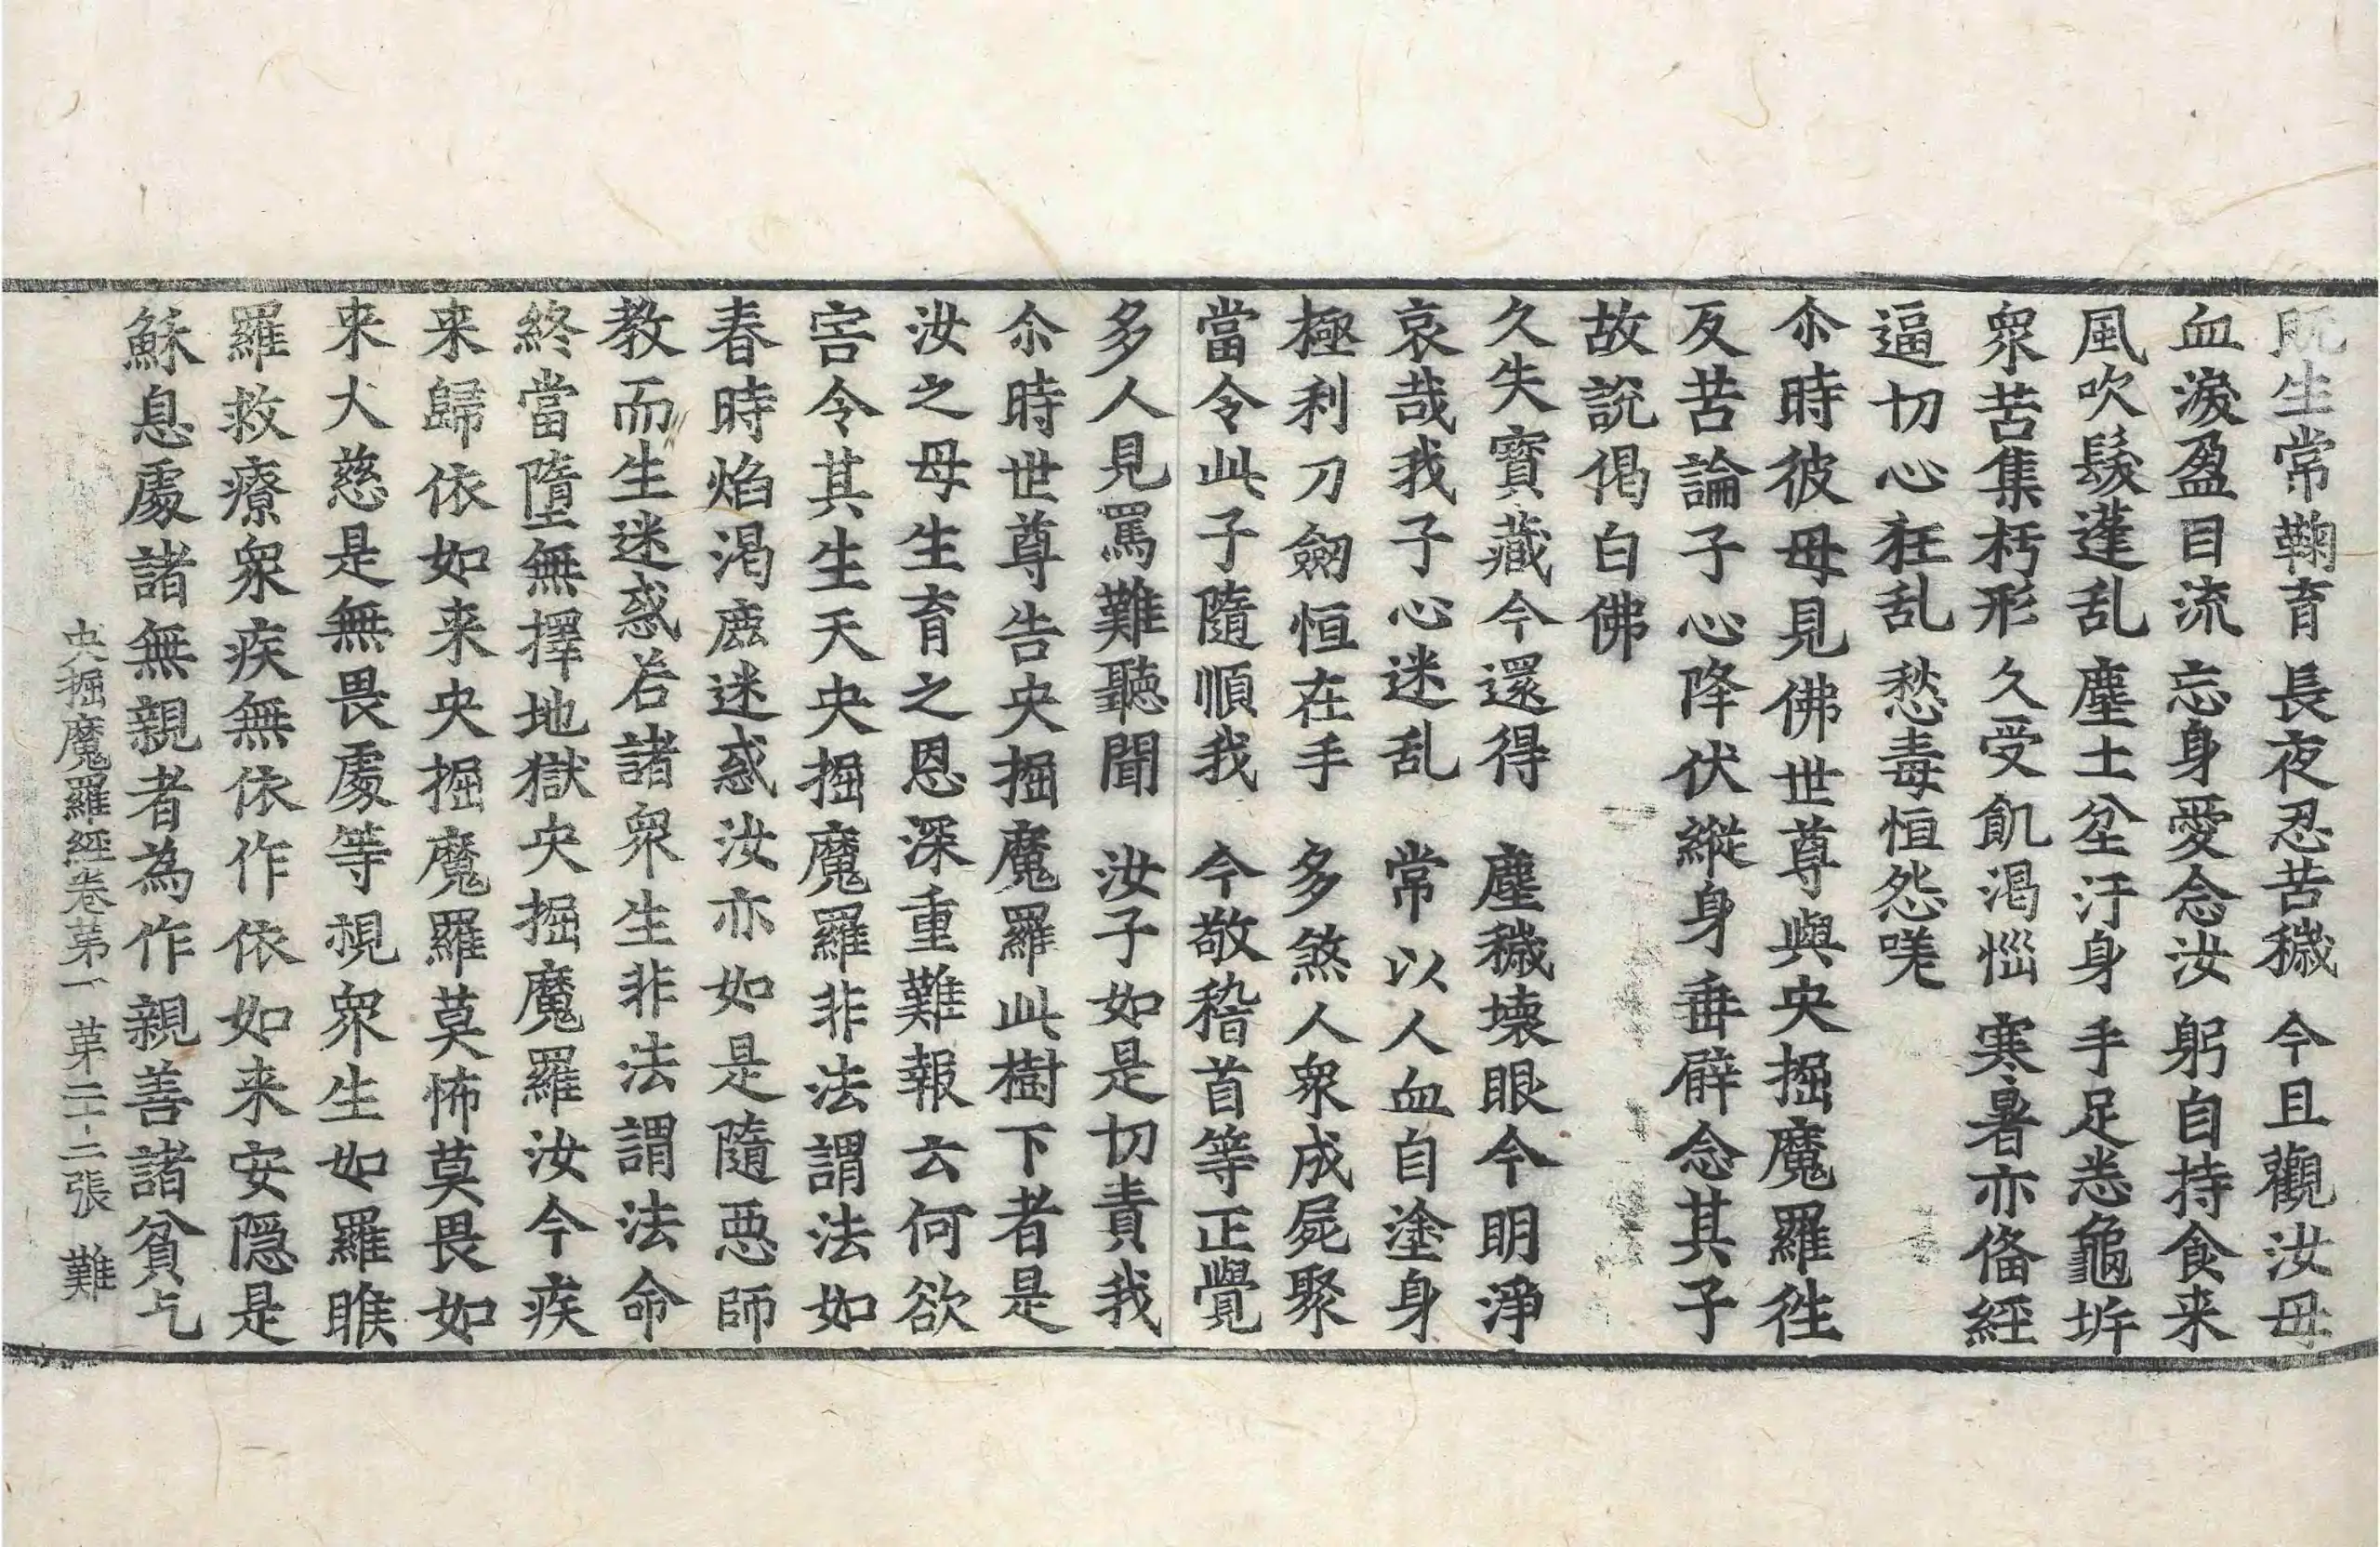 既生常鞠育 長夜忍苦穢 今且觀汝母
血淚盈目流 忘身愛念汝 躬自持食来
風吹髮蓬乱 塵土坌汙身 手足悉龜坼
衆苦集朽形 久受飢渴惱 寒暑亦俻經
逼切心狂乱 愁毒恒怨嘆
尒時彼母見佛世尊與央掘魔羅往
反苦論子心降伏縱身垂臂念其子
故說偈白佛
久失寶藏今還得 塵穢壞眼今明淨
哀哉我子心迷乱 常以人血自塗身
極利刀劒恒在手 多煞人衆成屍聚
當令此子隨順我 今敬稽首等正覺
多人見罵難聽聞 汝子如是切責我
尒時世尊告央掘魔羅此樹下者是
汝之母生育之恩深重難報云何欲
害令其生天央掘魔羅非法謂法如
春時焰渴鹿迷惑汝亦如是隨惡師
教而生迷惑若諸衆生非法謂法命
終當墮無擇地獄央掘魔羅汝今疾
来歸依如来央掘魔羅莫怖莫畏如
来大慈是無畏處等視衆生如羅睺
羅救療衆疾無依作依如来安隱是
穌息處諸無親者為作親善諸貧乞
央掘魔羅經卷第一 第二十二張 難